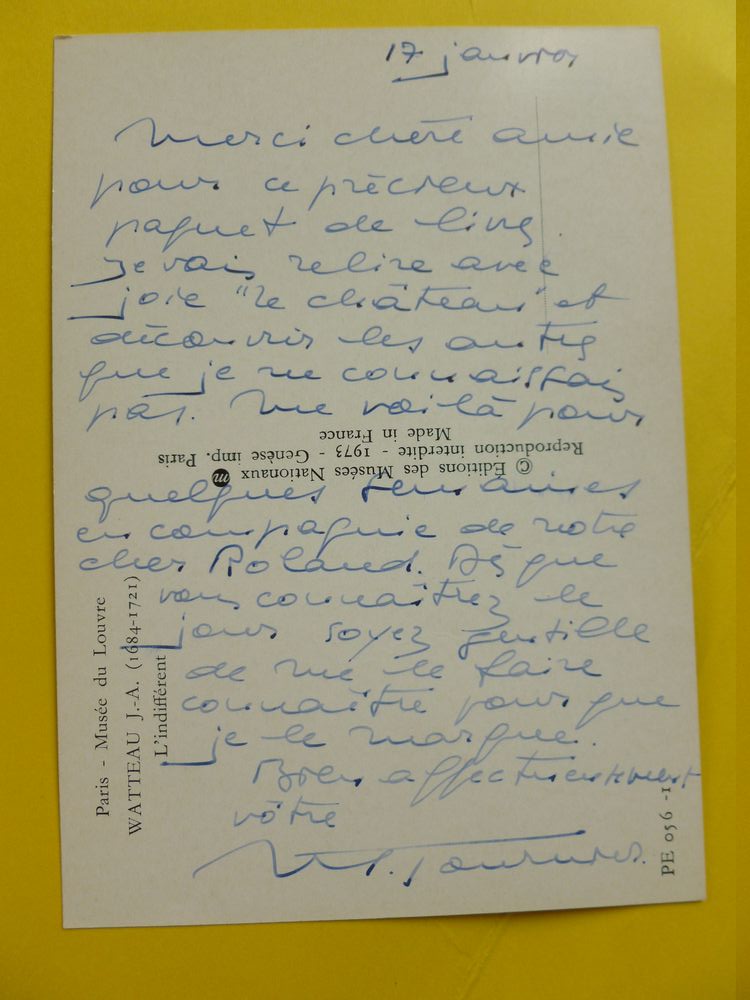 17 janvier
Merci chère amie
pour ce précieux
paquet de livres.
Je vais relire avec
joie "le château" et
découvrir les autres
que je ne connaissais
pas. Me voilà pour
quelques semaines
en compagnie de notre
cher Roland. Dès que
vous connaîtrez le
jour soyez gentille
de me le faire
connaître pour que
je le marque.
Bien affectueusement
vôtre
© Éditions des Musées Nationaux m
Reproduction interdite - 1973 - Genèse imp. Paris
Made in France
Paris - Musée du Louvre
WATTEAU J.-A. (1684-1721)
L'indifférent
PE 056 -1